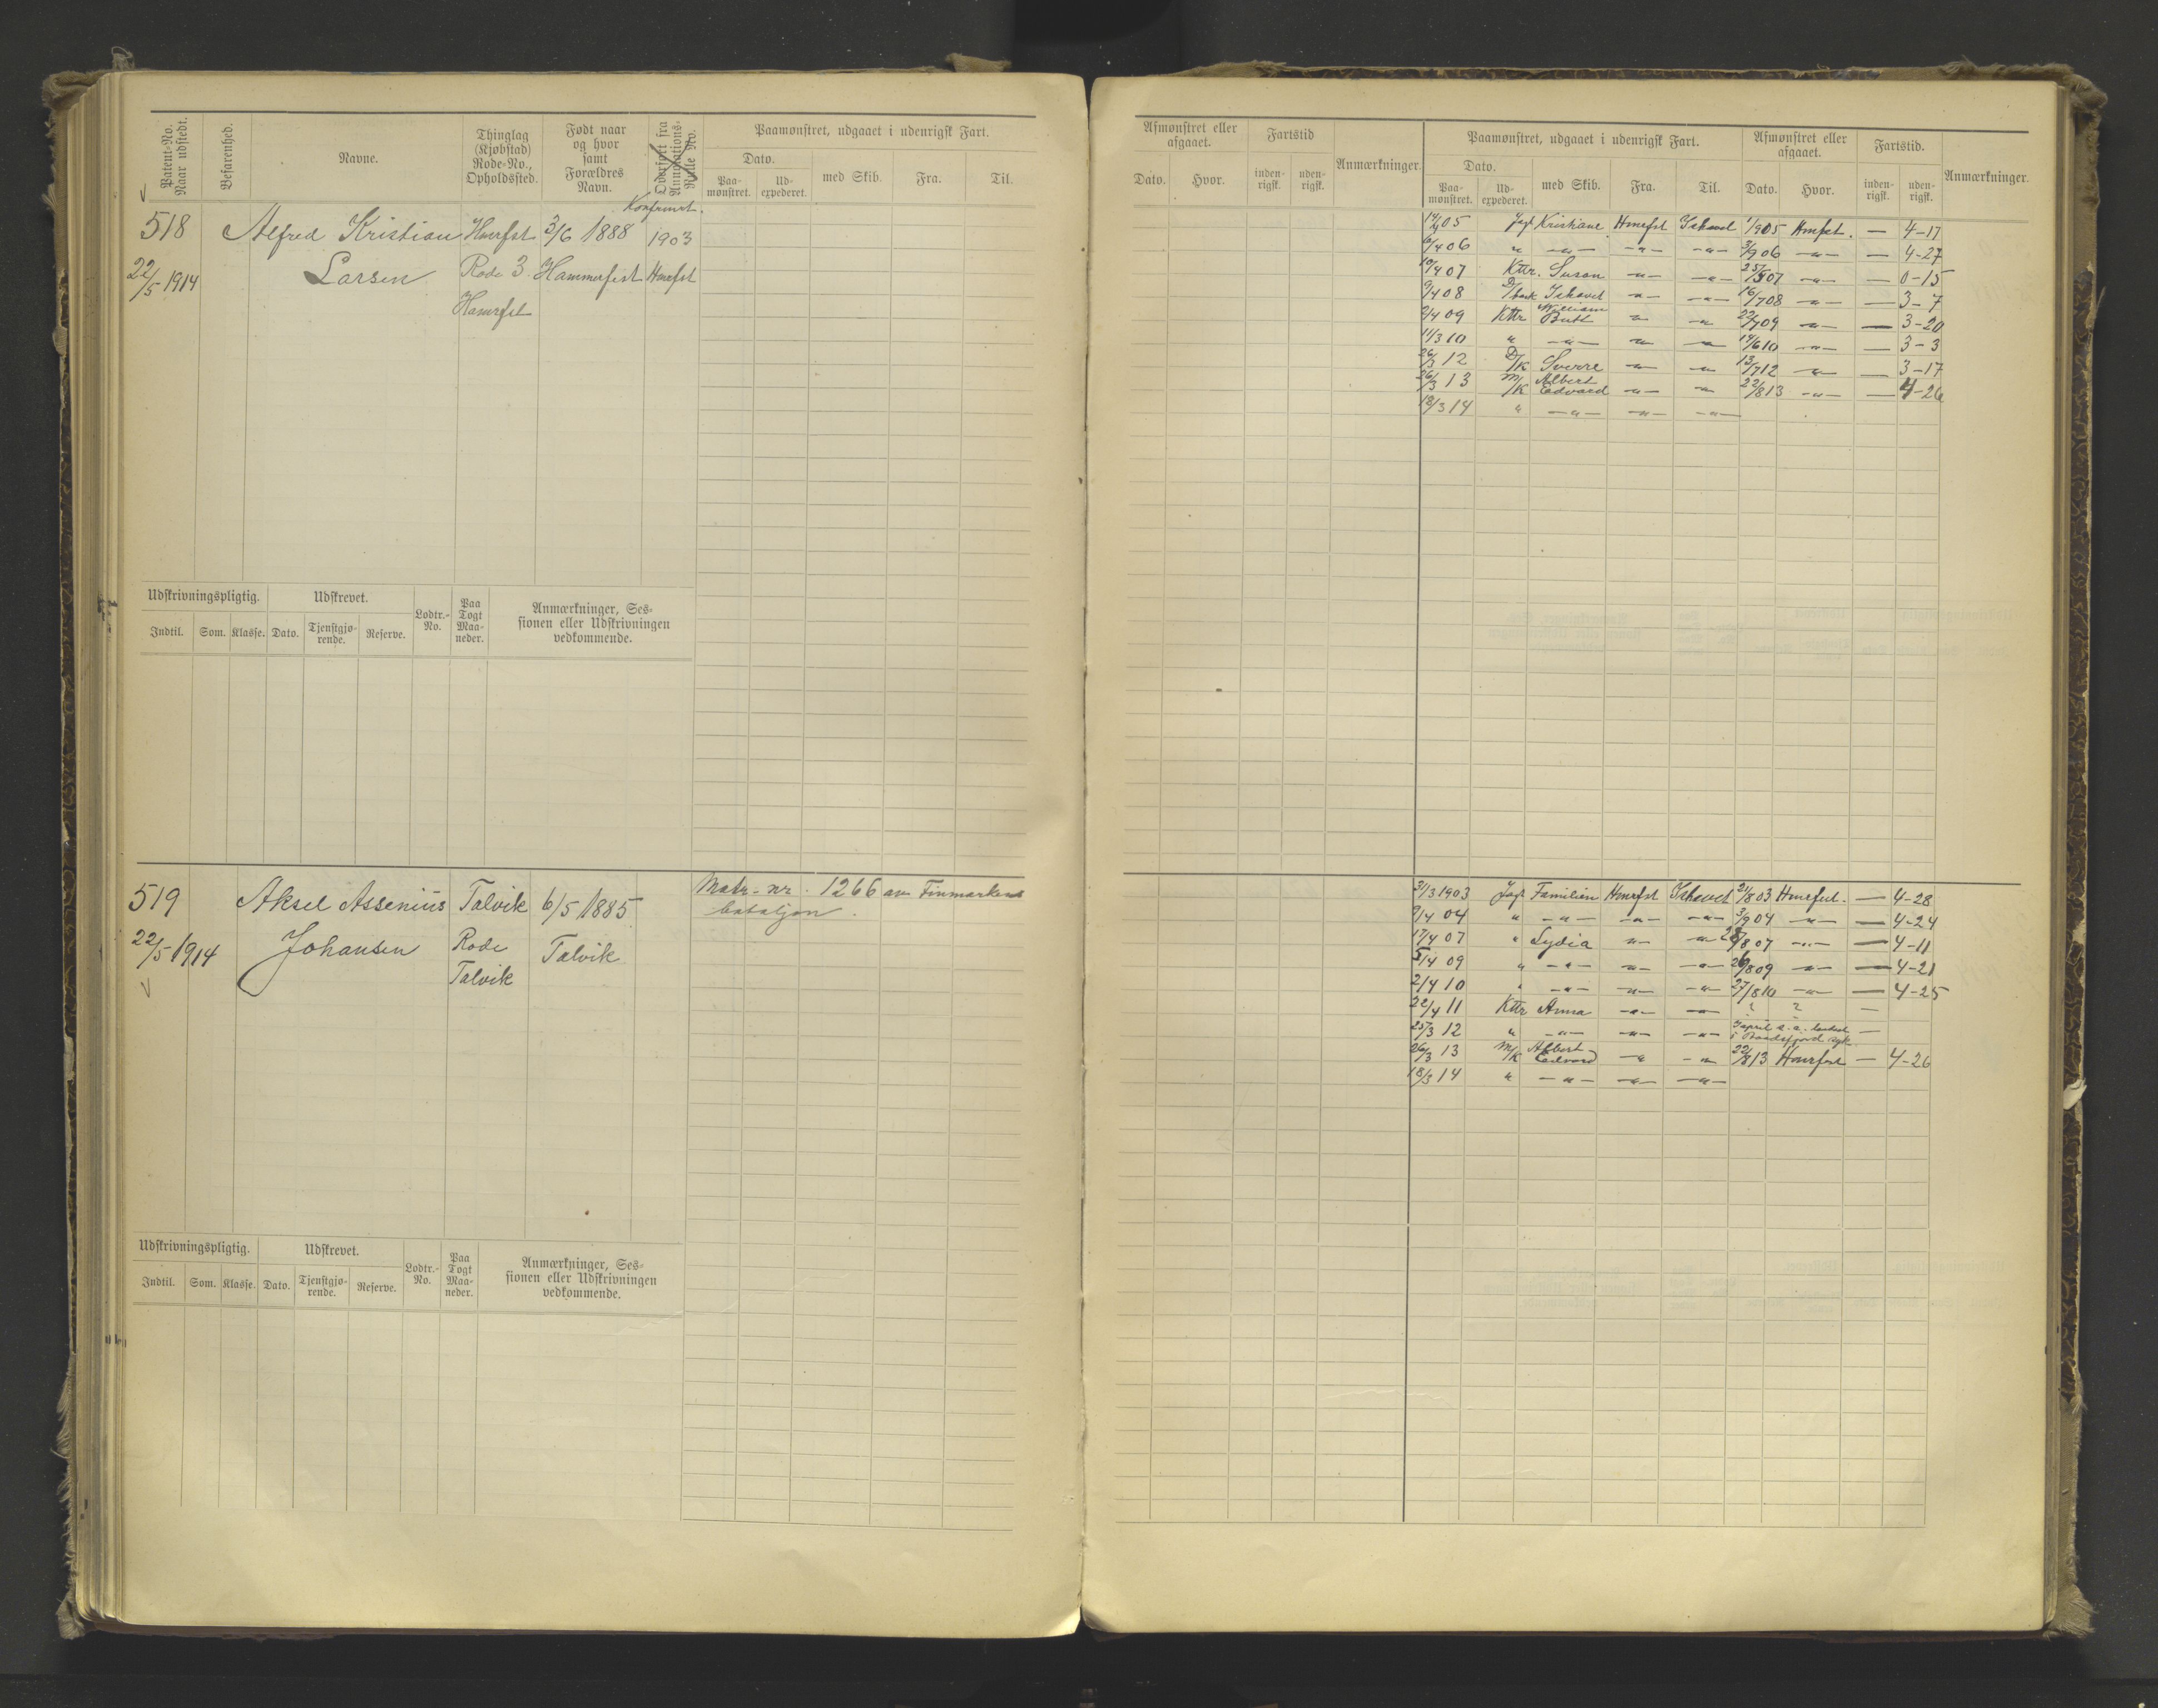 Patent-No. Naar udstedt.
Befarenhed.
Navne.
Thinglag (Kjøbstad) Rode-No., Opholdssted.
Født naar og hvor samt Forældres Navn.
Overført fra Annotations-Rulle No.
Konfirmert.
Paamønstret, udgaaet i udenrigsk Fart.
Dato.
Paa-mønstret. Ud-expederet. med Skib. Fra. Til.
518 Alfred Kristian Hmrfst 3/6 1888 1903
22/5 1914 Larsen Rode 3. Hammerfest Hmrfst
Hamrfst
Udskrivningspligtig. Udskrevet. Lodtr.-No. Paa Togt Maa-neder. Anmærkninger, Ses-sionen eller Udskrivningen vedkommende.
Indtil. Som. Klasse. Dato. Tjenstgjø-rende. Reserve.
519 Aksel Assenius Talvik 6/5 1885 Matr-nr. 1266 av Finmarkens
bataljon.
22/5 1914 Johansen Rode Talvik
Talvik
Udskrivningspligtig. Udskrevet. Lodtr.-No. Paa Togt Maa-neder. Anmærkninger, Ses-sionen eller Udskrivningen vedkommende.
Indtil. Som. Klasse. Dato. Tjenstgjø-rende. Reserve.
Afmønstret eller afgaaet. Fartstid Anmærkninger. Paamønstret, udgaaet i udenrigsk Fart. Afmønstret eller afgaaet. Fartstid. Anmærkninger.
Dato. Hvor. inden-rigsk. uden-rigsk. Dato. Paa-mønstret. Ud-expederet. med Skib. Fra. Til. Dato. Hvor. inden-rigsk. uden-rigsk.
14/4 05 Jagt Kristiane Hmrfst Ishavet 1/9 05 Hmfst. — 4-17
6/4 06 " —"— —"— —"— 3/9 06 —"— — 4-27
10/4 07 Kttr. Susan —"— —"— 25/4 07 —"— — 0-15
9/4 08 D/bark Ishavet —"— —"— 16/7 08 —"— — 3-7
2/4 09 Kttr William Butt —"— —"— 22/7 09 —"— — 3-20
11/3 10 " —"— —"— —"— 14/6 10 —"— — 3-3
26/3 12 D/K Sverre —"— —"— 13/7 12 —"— — 3-17
26/3 13 M/K Albert Edvard —"— —"— 22/8 13 —"— — 4-26
18/3 14 " —"— —"— —"—
31/3 1903 Jagt Familien Hmrfst Ishavet 21/8 03 Hmrfst. — 4-28
9/4 04 " —"— —"— —"— 3/9 04 —"— — 4-24
17/4 07 " Lydia —"— —"— 28/8 07 —"— — 4-11
5/4 09 " —"— —"— —"— 26/8 09 —"— — 4-21
2/4 10 " —"— —"— —"— 27/8 10 —"— — 4-25
22/4 11 Kttr Anna —"— —"— ? ? —
25/3 12 " —"— —"— —"— april s.a. landsat i Baadsfjord syk —
26/3 13 M/K Albert Edvard —"— —"— 22/8 13 Hmrfst — 4-26
18/3 14 " —"— —"— —"—